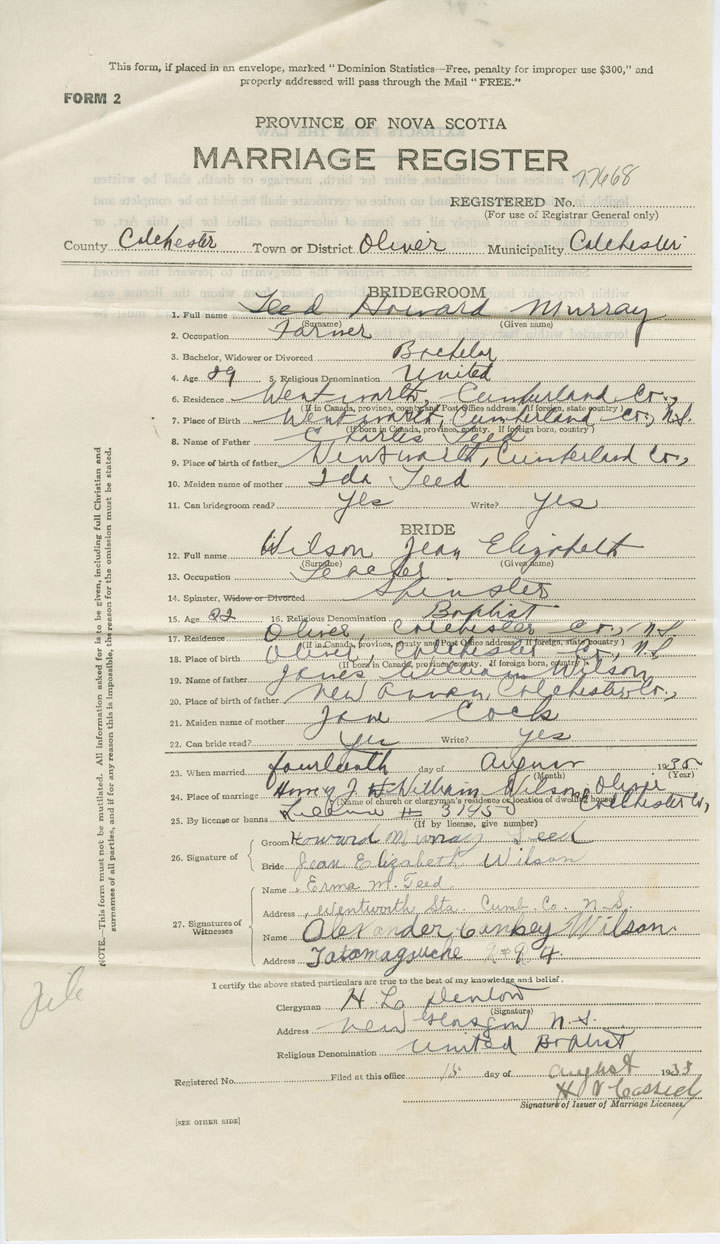 This form, if placed in an envelope, marked "Dominion Statistics—Free, penalty for improper use $300," and
properly addressed will pass through the Mail "FREE."
FORM 2
PROVINCE OF NOVA SCOTIA
MARRIAGE REGISTER
77668
REGISTERED No.
(For use of Registrar General only)
County Colchester Town or District Oliver Municipality Colchester
BRIDEGROOM
1. Full name Teed Howard Murray
(Surname) (Given name)
2. Occupation Farmer
3. Bachelor, Widower or Divorced Bachelor
4. Age 29 5. Religious Denomination United
6. Residence Wentworth, Cumberland Co.,
(If in Canada, province, county and Post Office address. If foreign, state country)
7. Place of Birth Wentworth, Cumberland Co., N.S.
(If born in Canada, province, county. If foreign born, country)
8. Name of Father Charles Teed
9. Place of birth of father Wentworth, Cumberland Co.,
10. Maiden name of mother Ida Teed
11. Can bridegroom read? Yes Write? Yes
BRIDE
12. Full name Wilson Jean Elizabeth
(Surname) (Given name)
13. Occupation Teacher
14. Spinster, Widow or Divorced Spinster
15. Age 22 16. Religious Denomination Baptist
17. Residence Oliver, Colchester Co., N.S.
(If in Canada, province, county and Post Office address. If foreign, state country)
18. Place of birth Oliver, Colchester Co., N.S
(If born in Canada, province, county. If foreign born, country)
19. Name of father James William Wilson
20. Place of birth of father New Annan, Colchester Co.,
21. Maiden name of mother Jane Cock
22. Can bride read? Yes Write? Yes
23. When married fourteenth day of August 1935
(Month) (Year)
24. Place of marriage Home J. William Wilson, Oliver
(Name of church or clergyman's residence or location of dwelling house) Colchester Co,
25. By license or banns License # 31450
(If by license, give number)
26. Signature of
Groom Howard Murray Teed
Bride Jean Elizabeth Wilson
27. Signatures of Witnesses
Name Erma M. Teed
Address Wentworth Sta. Cumb. Co. N.S.
Name Alexander Wilson
Address Tatamagouche R # 4
I certify the above stated particulars are true to the best of my knowledge and belief.
Clergyman H. L. Denton
(Signature)
Address New Glasgow N.S.
Religious Denomination United Baptist
Registered No. Filed at this office 15 day of August 1935
Signature of Issuer of Marriage Licenses.
[SEE OTHER SIDE]
NOTE.—This form must not be mutilated. All information asked for is to be given, including full Christian and
surnames of all parties, and if for any reason this is impossible, the reason for the omission must be stated.